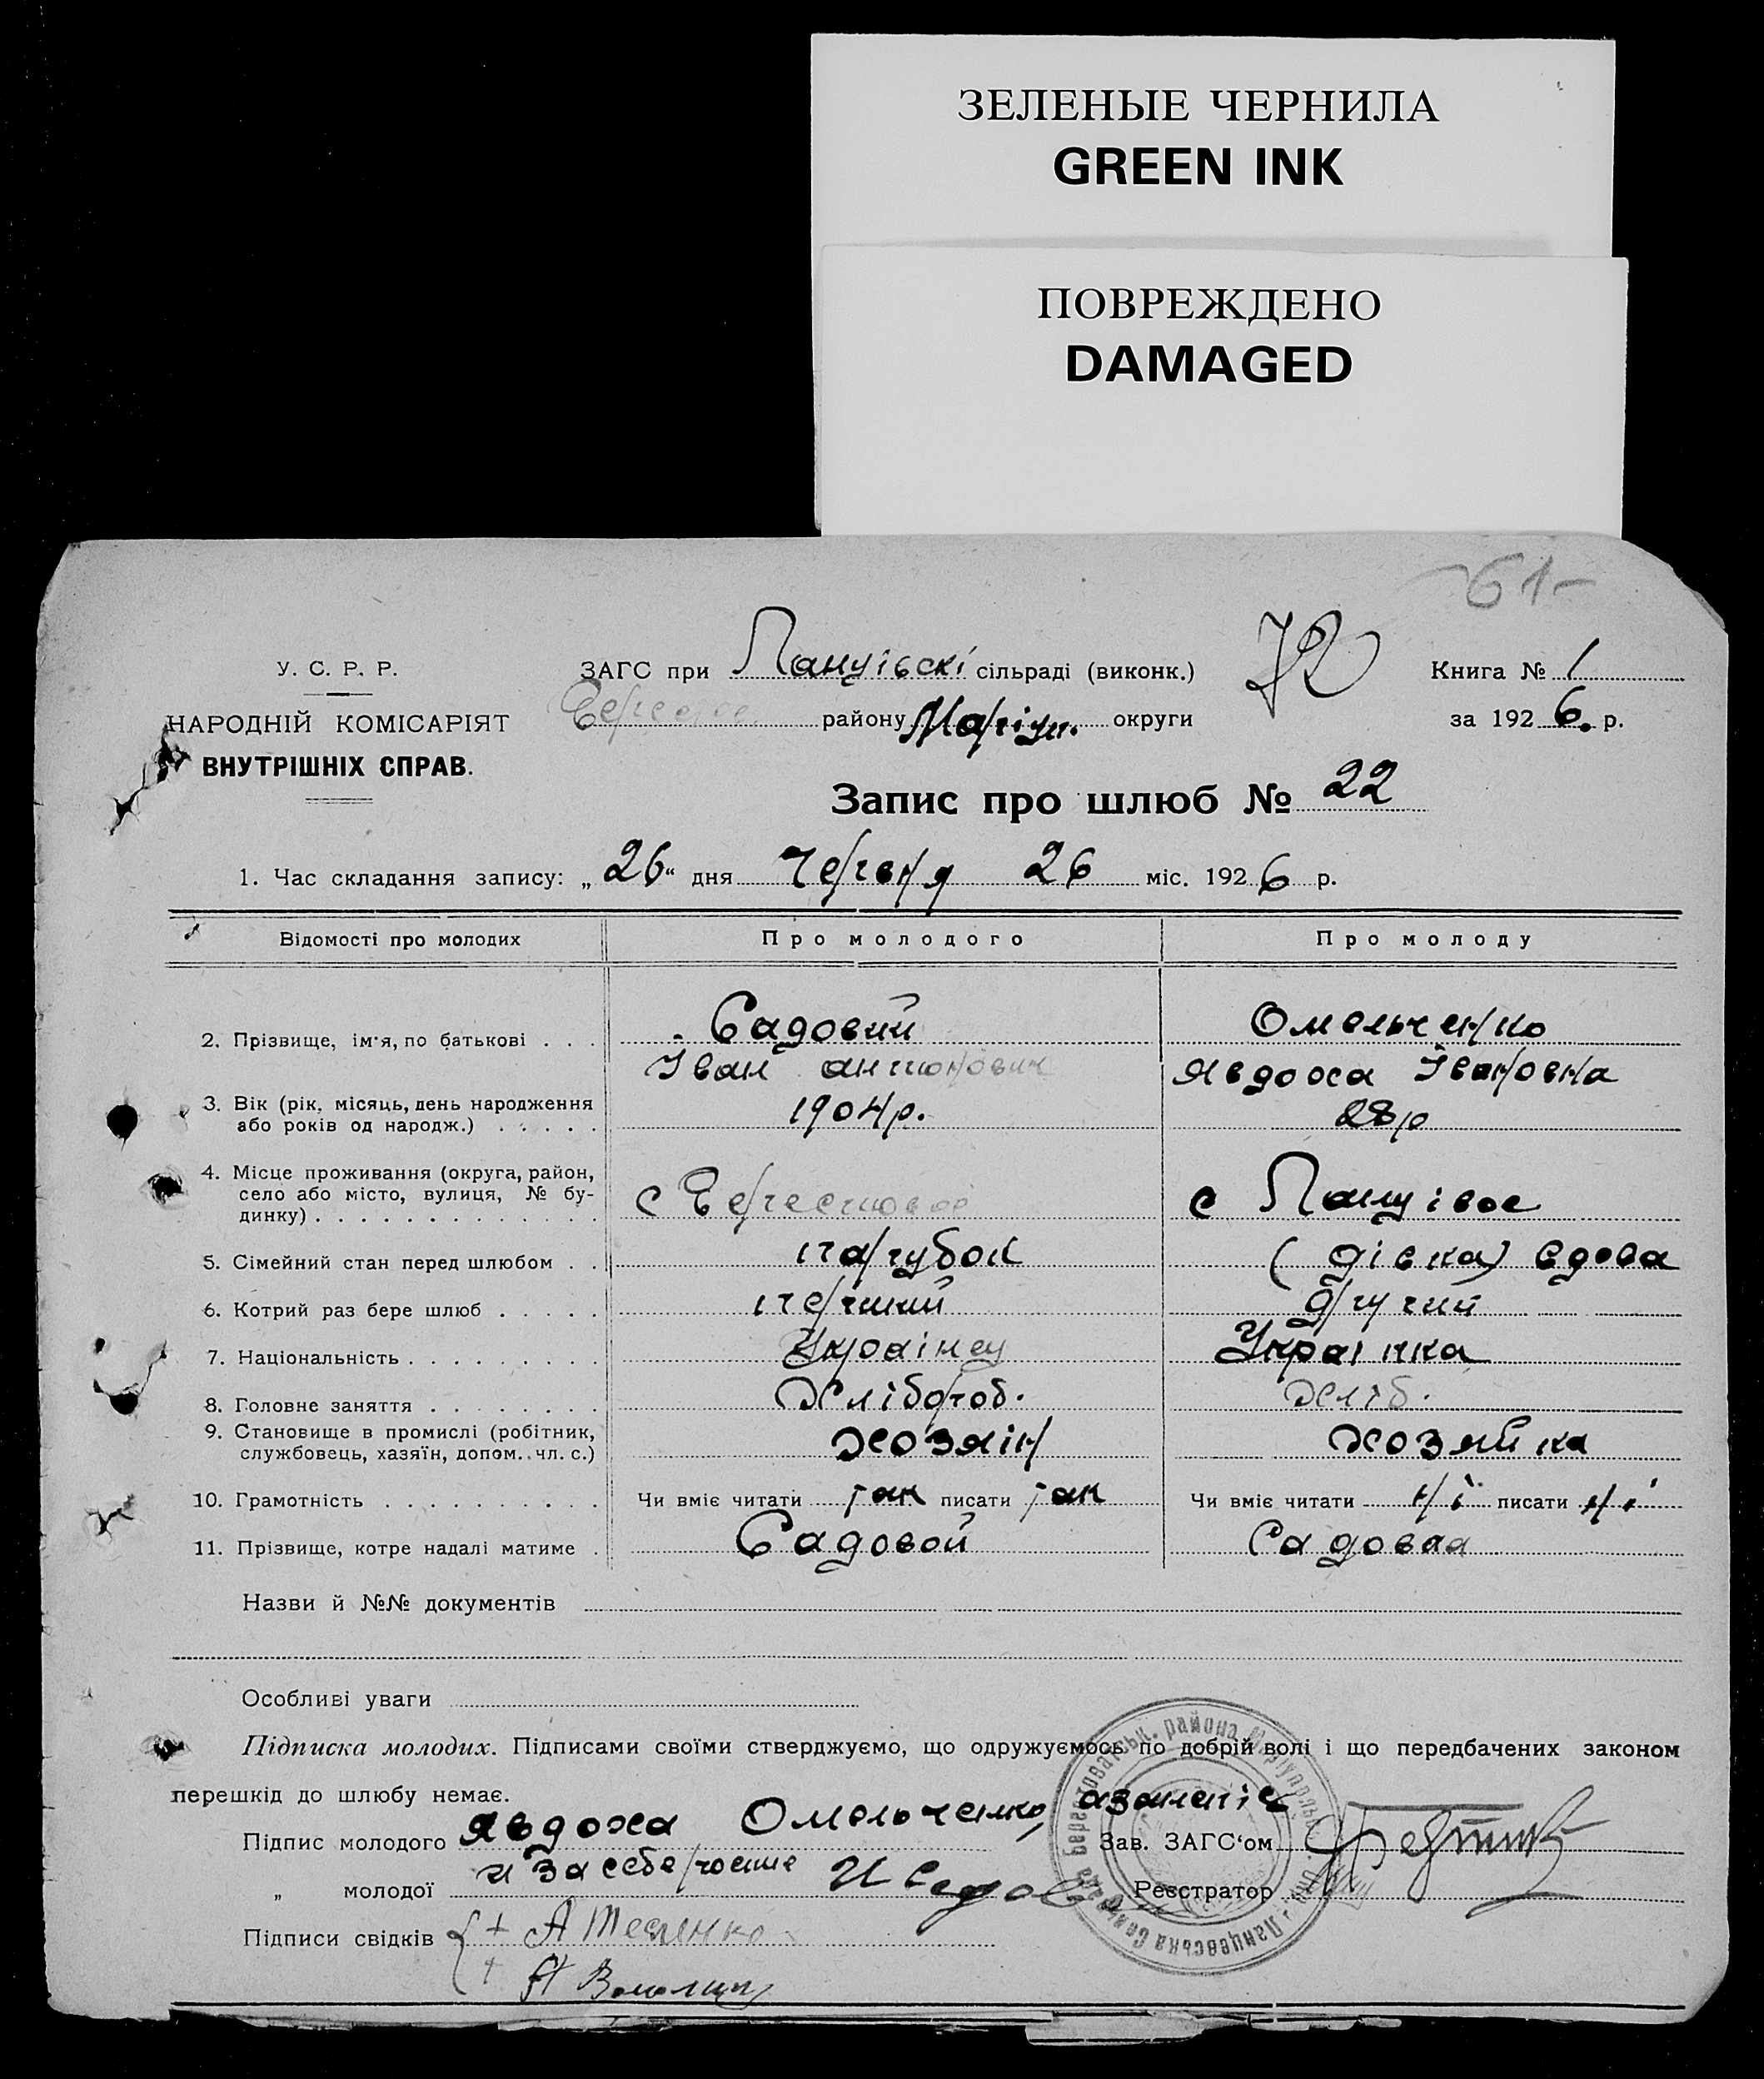 ЗЕЛЕНЫЕ ЧЕРНИЛА
GREEN INK
ПОВРЕЖДЕНО
DAMAGED
61-
У. С. Р. Р.
НАРОДНІЙ КОМІСАРІЯТ
ВНУТРІШНІХ СПРАВ.
ЗАГС при Ланцівскі сільраді (виконк.)
району Маріуп. округи
Книга № 1
за 1926. р.
Запис про шлюб № 22
1. Час складання запису: „26“ дня Червня 26 міс. 1926 р.
Відомості про молодих Про молодого Про молоду
2. Прізвище, ім'я, по батькові . . . Садовий Омельченко
Іван Антонович Явдоха Івановна
3. Вік (рік, місяць, день народження 1904 р. 28 р
або років од народж.) . . . . .
4. Місце проживання (округа, район,
село або місто, вулиця, № бу- с Берестовое с Ланцівое
динку) . . . . . . . . . . . . .
5. Сімейний стан перед шлюбом . . парубок (дівка) вдова
6. Котрий раз бере шлюб . . . . . перший другий
7. Національність . . . . . . . . . Українец Українка
8. Головне заняття . . . . . . . . Хлібороб. Хліб.
9. Становище в промислі (робітник, хозяін хозяйка
службовець, хазяїн, допом. чл. с.)
10. Грамотність . . . . . . . . . . Чи вміє читати так писати так Чи вміє читати ні писати ні
11. Прізвище, котре надалі матиме . Садовой Садовая
Назви й №№ документів
Особливі уваги
Підписка молодих. Підписами своїми стверджуємо, що одружуємось по добрій волі і що передбачених законом
перешкід до шлюбу немає.
Підпис молодого Явдоха Омельченко Зав. ЗАГС‘ом
„ молодої и за себе Реєстратор
Підписи свідків + А Тесленко
+